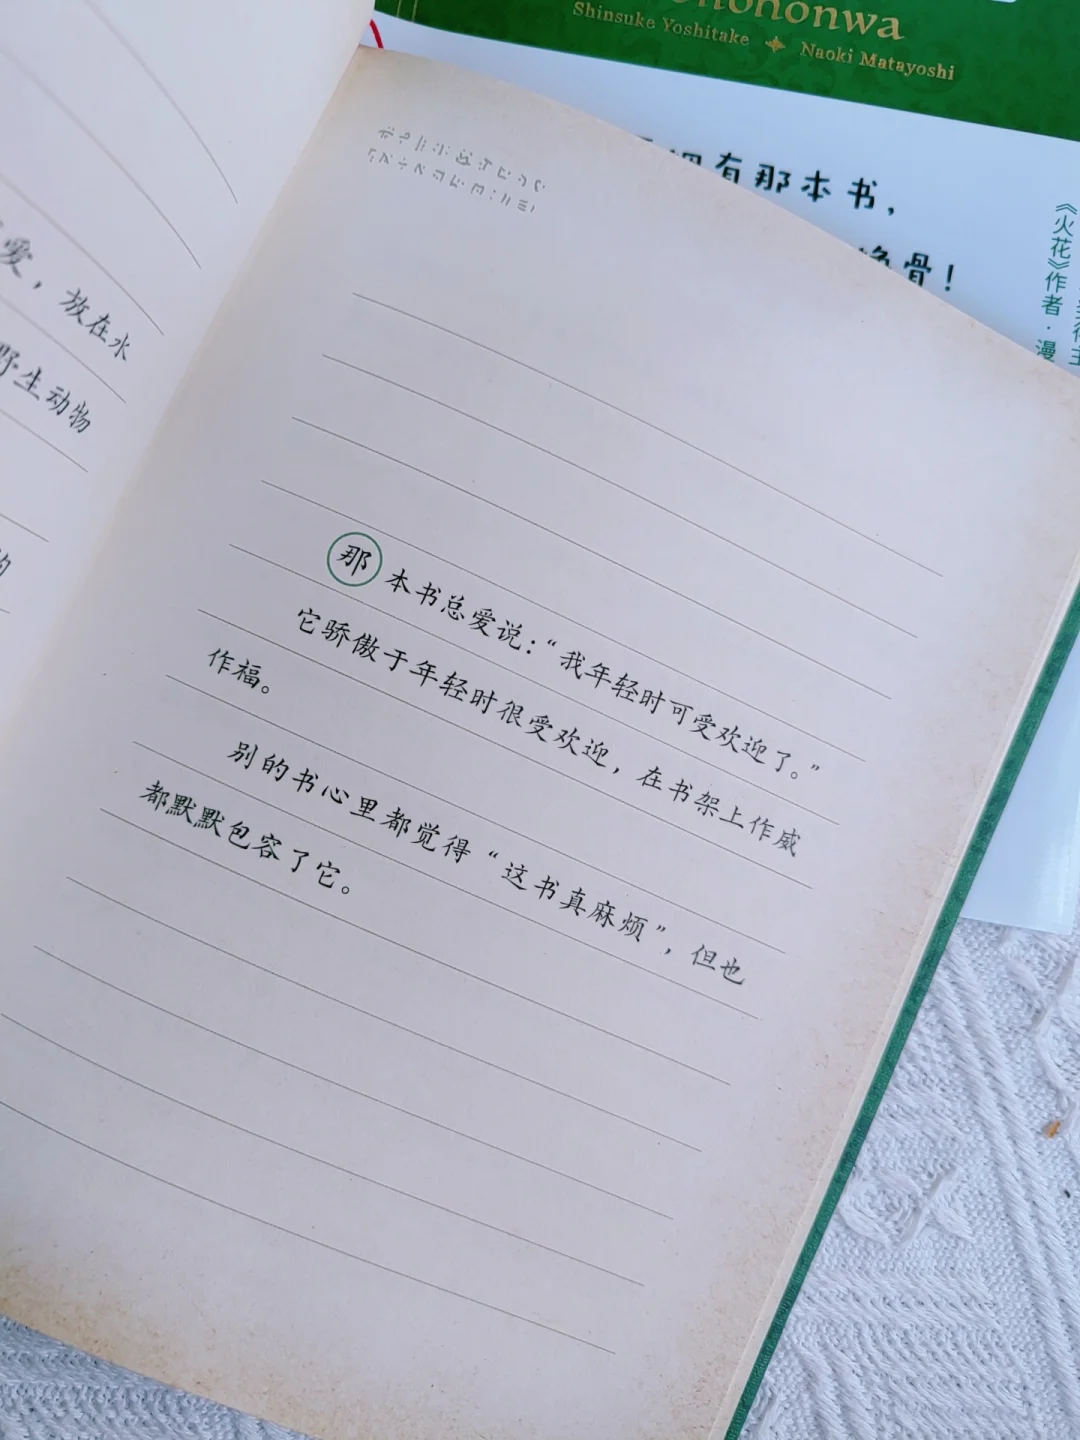 Shinsuke Yoshitake Naoki Matayoshi
有那本书，
骨！
《火花》作者·漫
爱，放在水
野生动物
那本书总爱说：“我年轻时可受欢迎了。”
它骄傲于年轻时很受欢迎，在书架上作威
作福。
别的书心里都觉得“这书真麻烦”，但也
都默默包容了它。